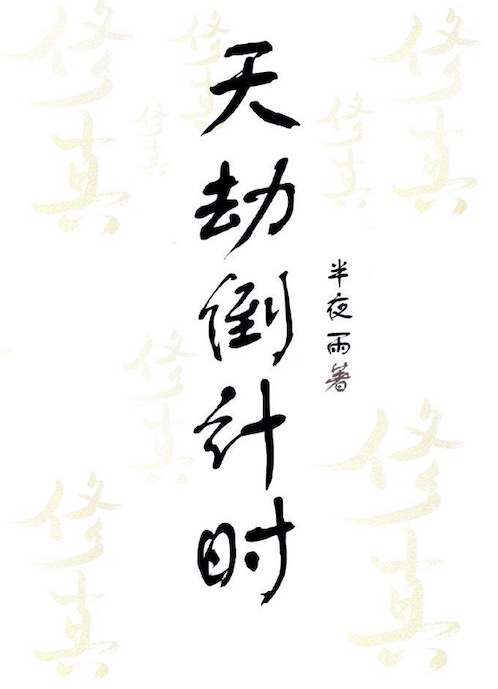 天劫倒计时
半夜雨著
修真
修真
修真
修真
修真
修真
修真
修真